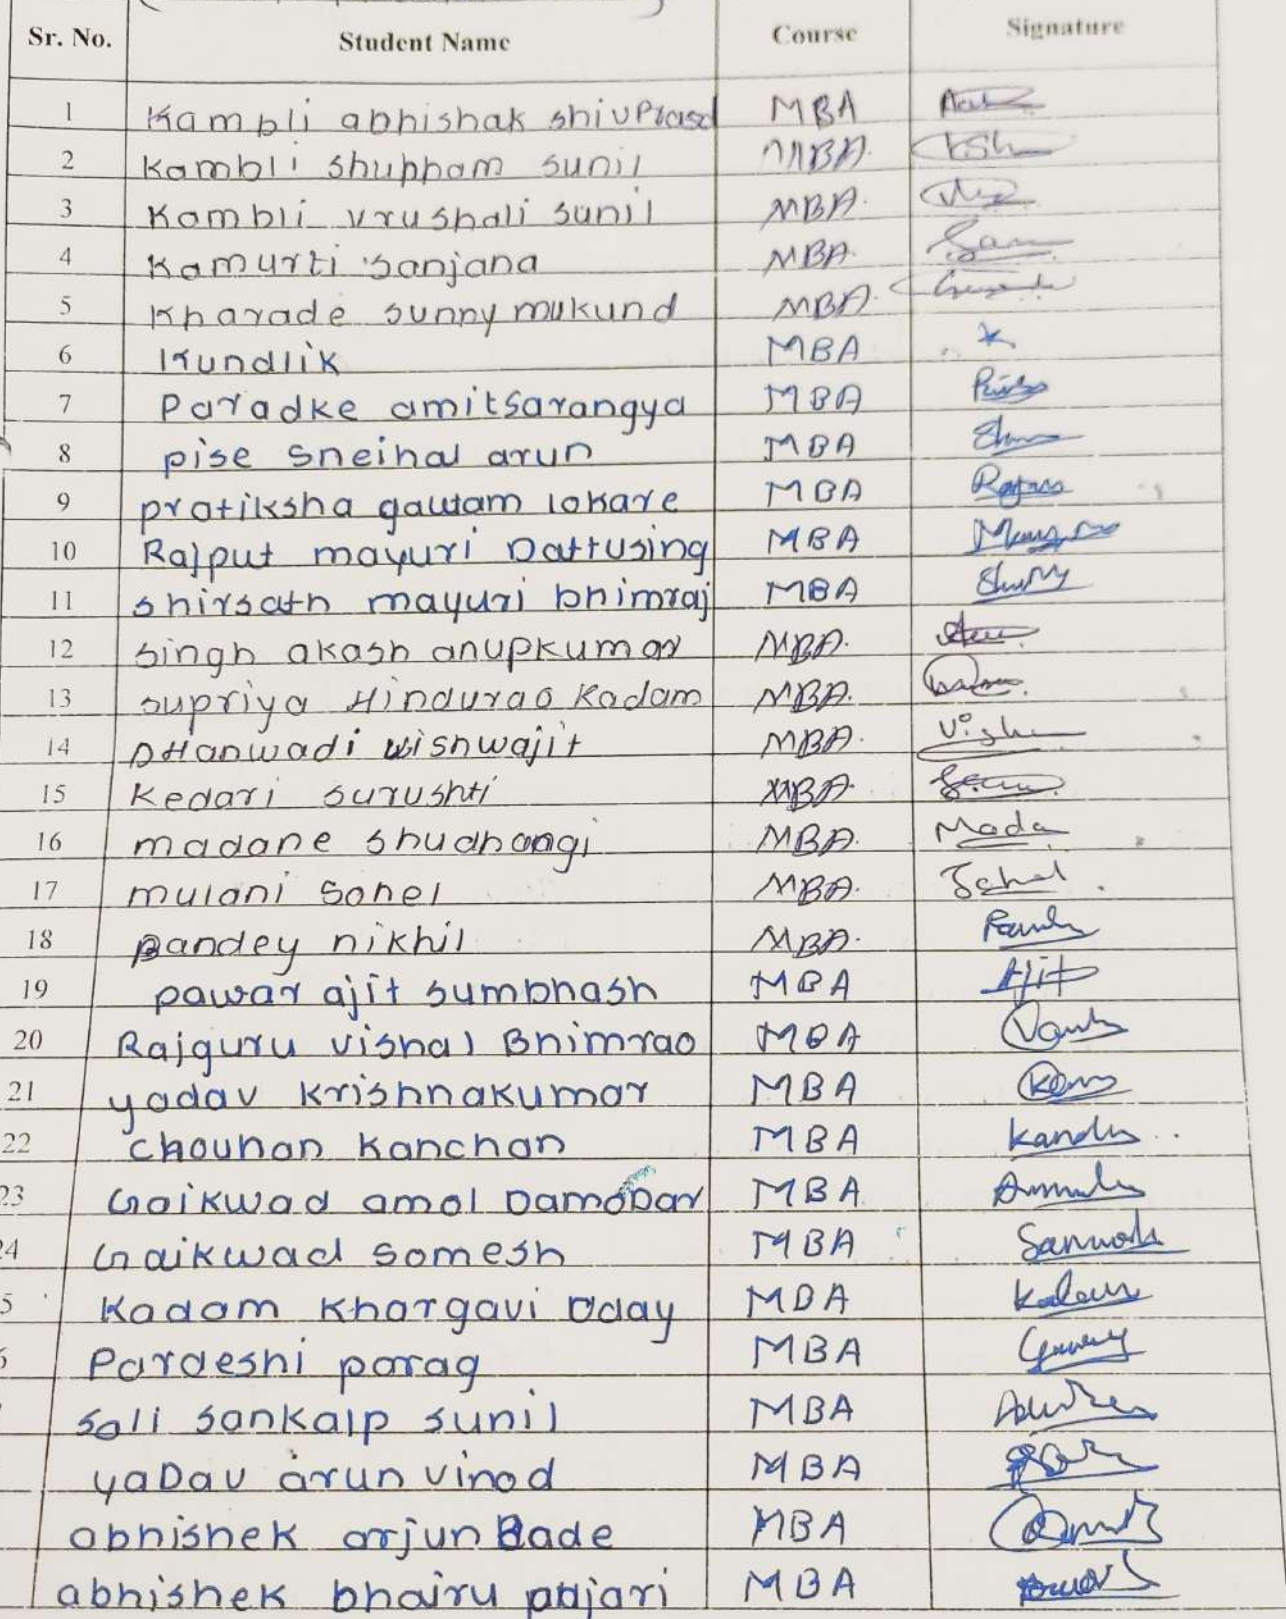 Sr. No. Student Name Course Signature
1 Kambli abhishak shivprasd MBA
2 Kambli shubham sunil MBA.
3 Kambli vrushali sunil MBA.
4 Kamurti sanjana MBA.
5 Kharade sunny mukund MBA.
6 Kundlik MBA
7 Paradke amitsarangya MBA
8 pise sneihal arun MBA
9 pratiksha gautam lokare MBA
10 Rajput mayuri Dattusing MBA
11 shirsath mayuri bhimraj MBA
12 singh akash anupkumar MBA.
13 supriya Hindurao Kadam MBA.
14 DHanwadi wishwajit MBA.
15 Kedari surushti MBA.
16 madane shudhangi MBA. Mada
17 mulani sohel MBA. Sohel
18 pandey nikhil MBA.
19 pawar ajit sumbhash MBA Ajit
20 Rajguru vishal Bhimrao MBA
21 yadav krishnakumar MBA
22 chouhan kanchan MBA
23 Gaikwad amol Damodar MBA
24 Gaikwad somesh MBA
5 Kadam Khargavi Uday MBA
Pardeshi parag MBA
sali sankalp sunil MBA
yaDav arun vinod MBA
abhishek arjun Bade MBA
abhishek bhairu pujari MBA